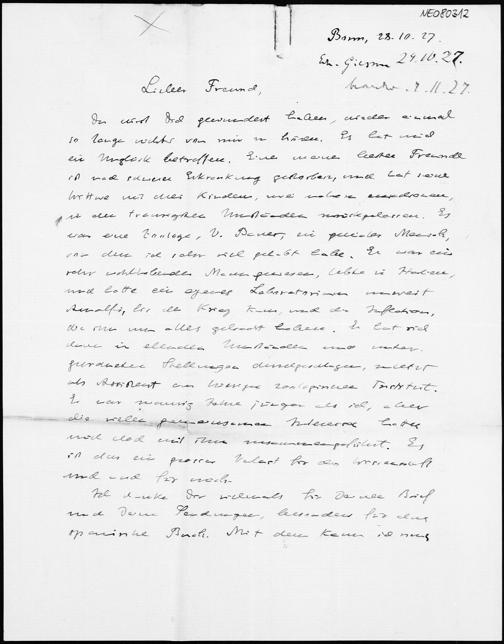 NE080312
Bonn, 28.10.27.
29.10.27.
11.27.
Lieber Freund,
Du wirst Dich gewundert haben, wieder einmal
so lange nichts von mir zu hören. Es hat mich
ein Unglück betroffen. Einer meiner besten Freunde
ist nach schwerer Erkrankung gestorben, und hat seine
Wittwe mit drei Kindern,
in den traurigsten Umständen zurückgelassen. Es
war ein Zoologe, V. Bauer, ein genialer Mensch,
von dem ich sehr viel gehabt habe. Er war ein
sehr wohlhabender Mann gewesen, lebte in Italien,
und hatte ein eigenes Laboratorium unweit
Amalfi, bis der Krieg kam, und die Inflation,
die ihn um alles gebracht haben. Er hat sich
dann in elenden Umständen und
Stellungen durchgeschlagen, zuletzt
als Assistent am zoologischen Institut.
Er war zwanzig Jahre jünger als ich, aber
die vielen gemeinsamen Interessen hatten
mich doch mit ihm zusammengeführt. Es
ist das ein grosser Verlust für die Wissenschaft
und auch für mich.
Ich danke Dir vielmals für Deinen Brief
und Deine Sendungen, besonders für das
spanische Buch. Mit dem kann ich mich